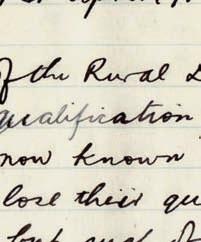 of the Rural D
qualification
now known
lose their qu